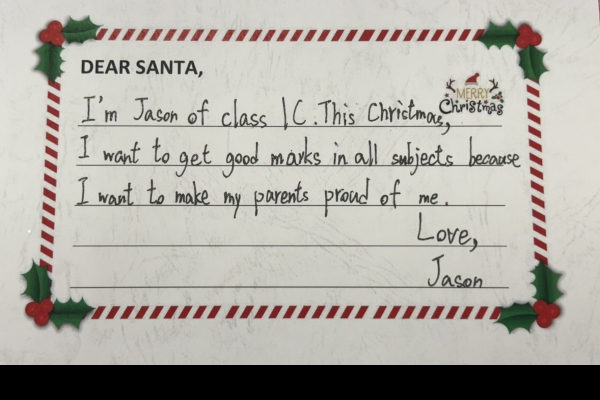 DEAR SANTA,
MERRY
Christmas
I'm Jason of class 1C. This Christmas,
I want to get good marks in all subjects because
I want to make my parents proud of me.
Love,
Jason